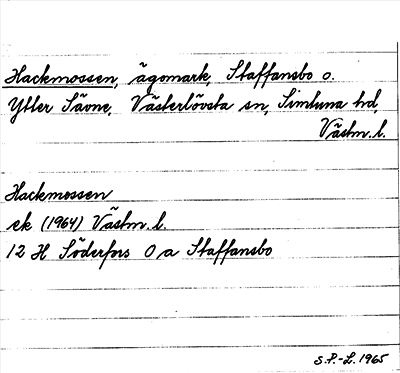 Hackmossen, ägomark, Staffansbo o.
Ytter Sävne, Västerlövsta sn, Simtuna hd,
Västm. l.
Hackmossen
ek (1964) Västm. l.
12 H Söderfors 0 a Staffansbo
S.P.-L. 1965